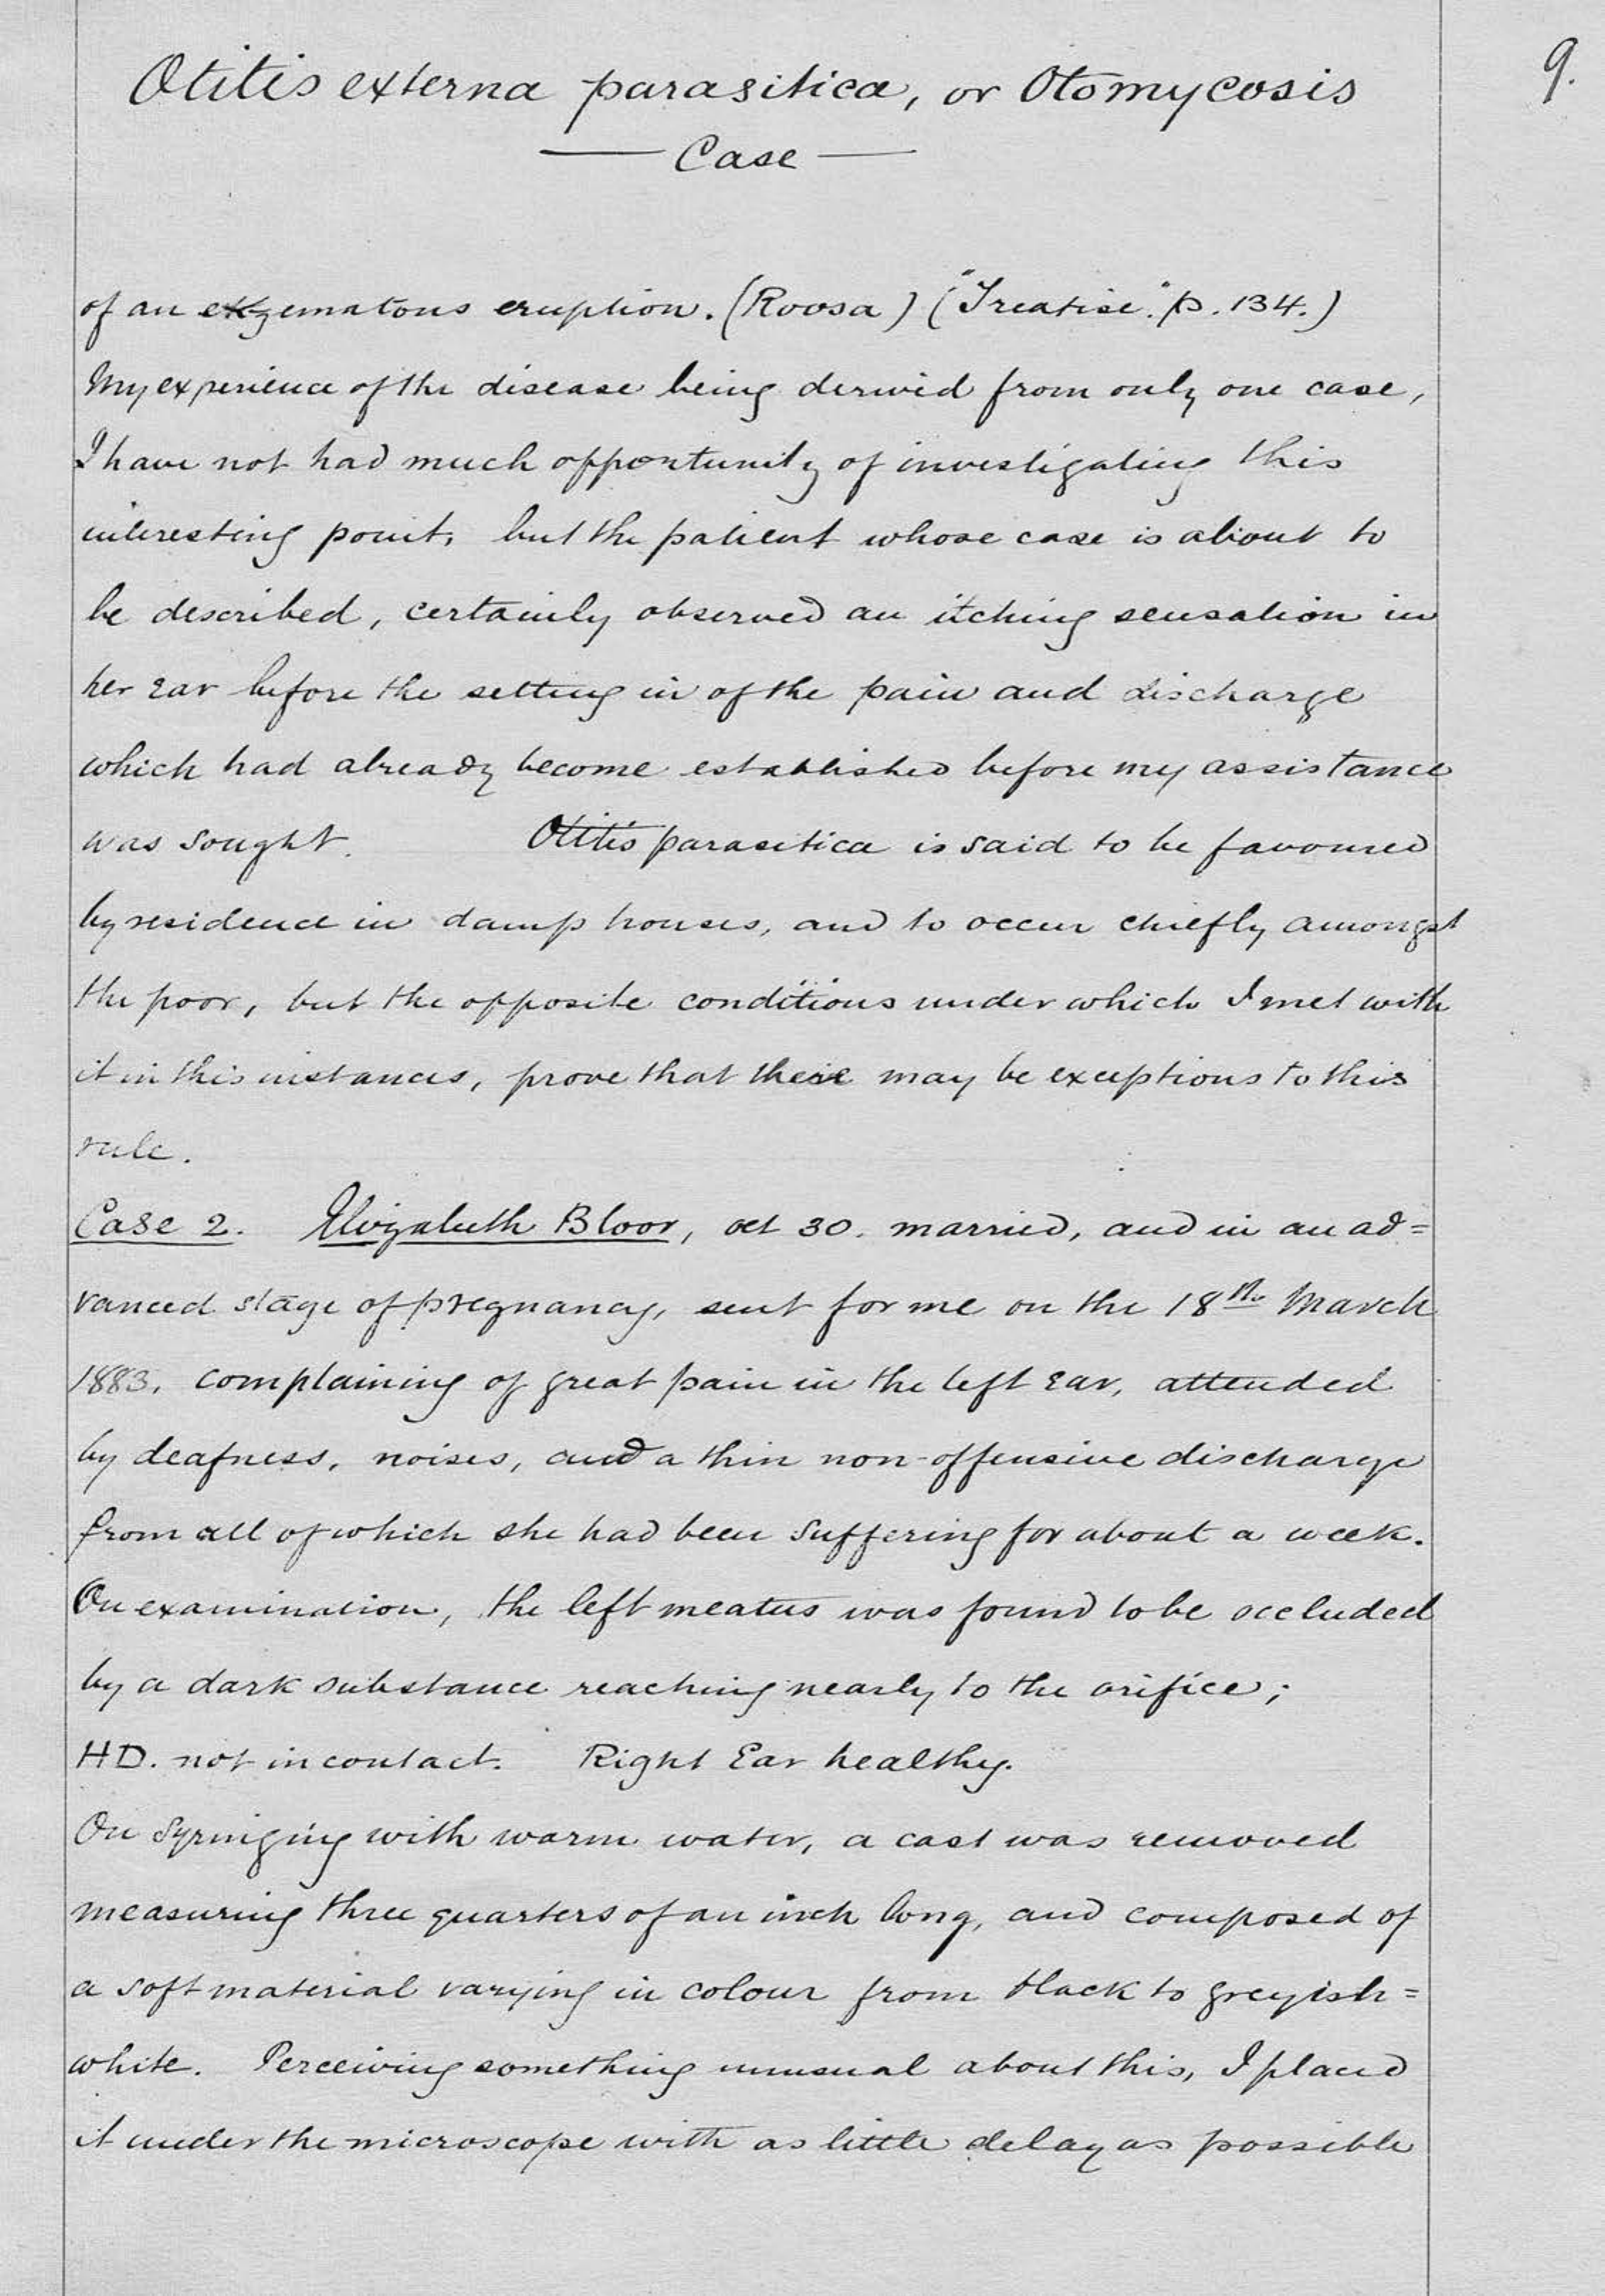 Otitis externa parasitica, or Otomycosis
9.
— Case —
of an ekzematous eruption. (Roosa) ("Treatise". p. 134.)
My experience of the disease being derived from only one case,
I have not had much opportunity of investigating this
interesting point, but the patient whose case is about to
be described, certainly observed an itching sensation in
her ear before the setting in of the pain and discharge
which had already become established before my assistance
was sought. Otitis parasitica is said to be favoured
by residence in damp houses, and to occur chiefly amongst
the poor, but the opposite conditions under which I met with
it in this instances, prove that there may be exceptions to this
rule.
Case 2. Elizabeth Bloor, aet 30. married, and in an ad=
vanced stage of pregnancy, sent for me on the 18th March
1883, complaining of great pain in the left ear, attended
by deafness, noises, and a thin non-offensive discharge
from all of which she had been suffering for about a week.
On examination, the left meatus was found to be occluded
by a dark substance reaching nearly to the orifice;
HD. not in contact. Right Ear healthy.
On syringing with warm water, a cast was removed
measuring three quarters of an inch long, and composed of
a soft material varying in colour from black to greyish=
white. Perceiving something unusual about this, I placed
it under the microscope with as little delay as possible